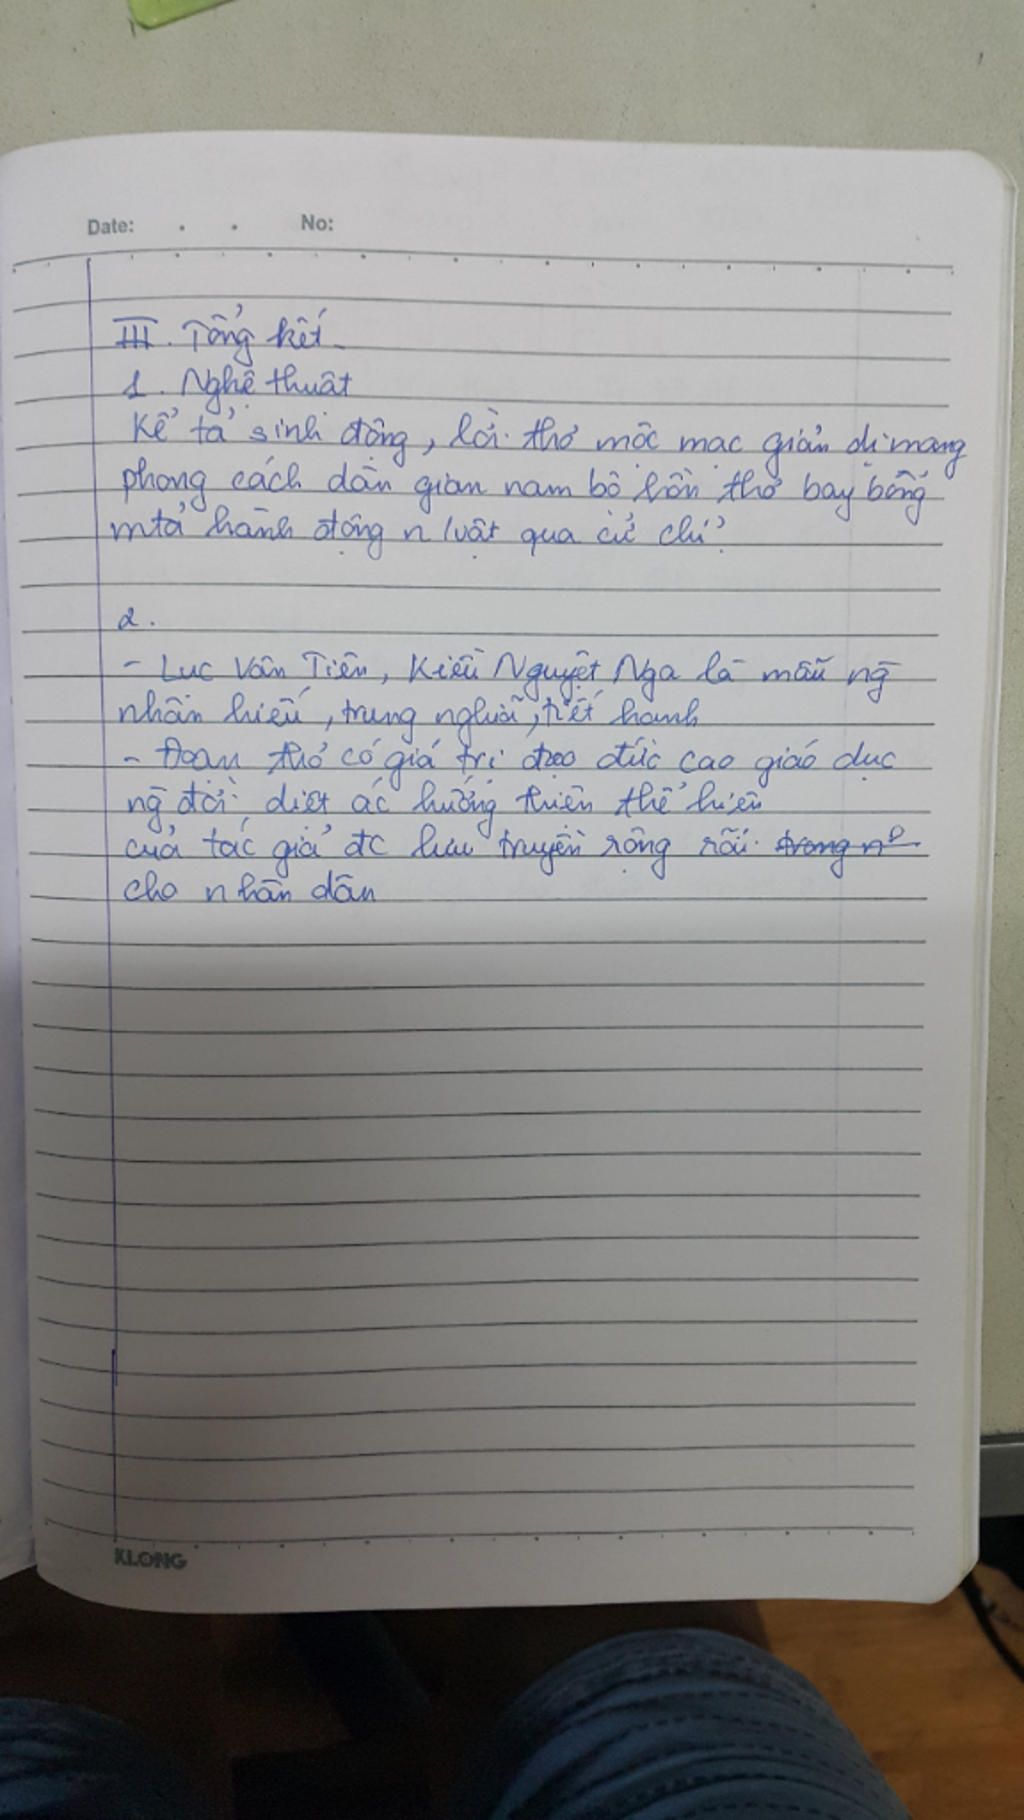 Date: . . No:
III. Tổng kết
1. Nghệ thuật
Kể tả sinh động, lời thơ mộc mạc giản dị mang
phong cách dân gian nam bộ hồn thơ bay bổng
mtả hành động n luật qua cử chỉ
2.
- Lục Vân Tiên, Kiều Nguyệt Nga là mẫu ng
nhân hiếu, trung nghĩa, tiết hạnh
- Đoạn thơ có giá trị đạo đức cao giáo dục
ng đời, diệt ác hướng thiện thể hiện
của tác giả đc lưu truyền rộng rãi trong n
cho nhân dân
KLONG